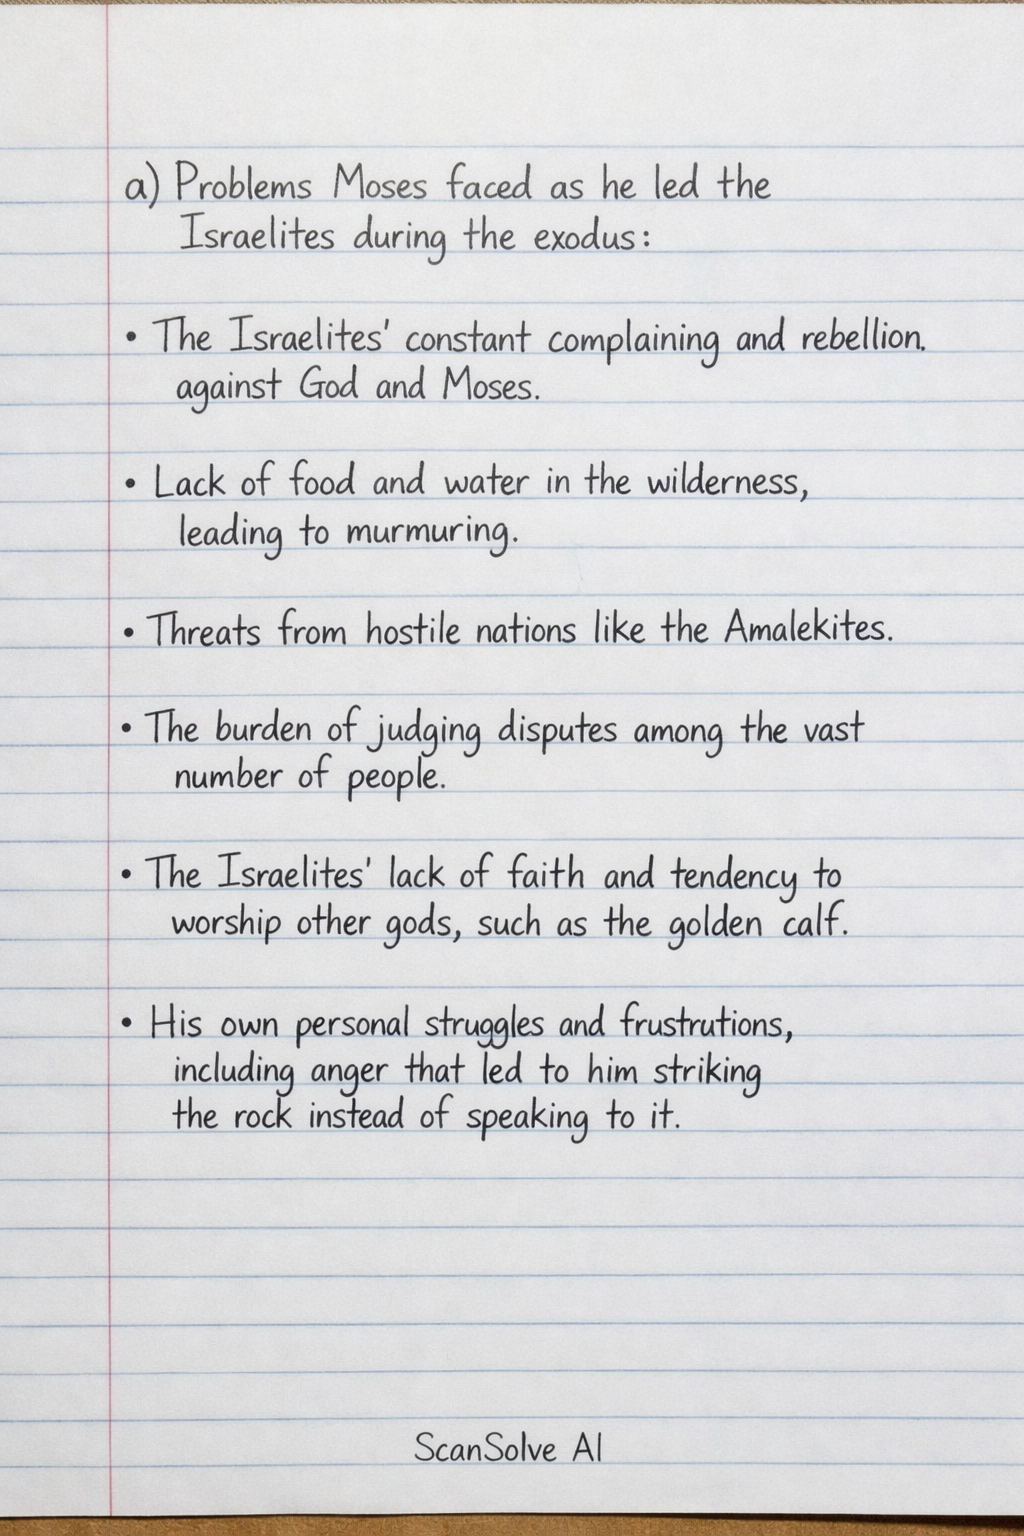 a) Problems Moses faced as he led the
Israelites during the exodus:
• The Israelites' constant complaining and rebellion.
against God and Moses.
• Lack of food and water in the wilderness,
leading to murmuring.
• Threats from hostile nations like the Amalekites.
• The burden of judging disputes among the vast
number of people.
• The Israelites' lack of faith and tendency to
worship other gods, such as the golden calf.
• His own personal struggles and frustrutions,
including anger that led to him striking
the rock instead of speaking to it.
ScanSolve AI